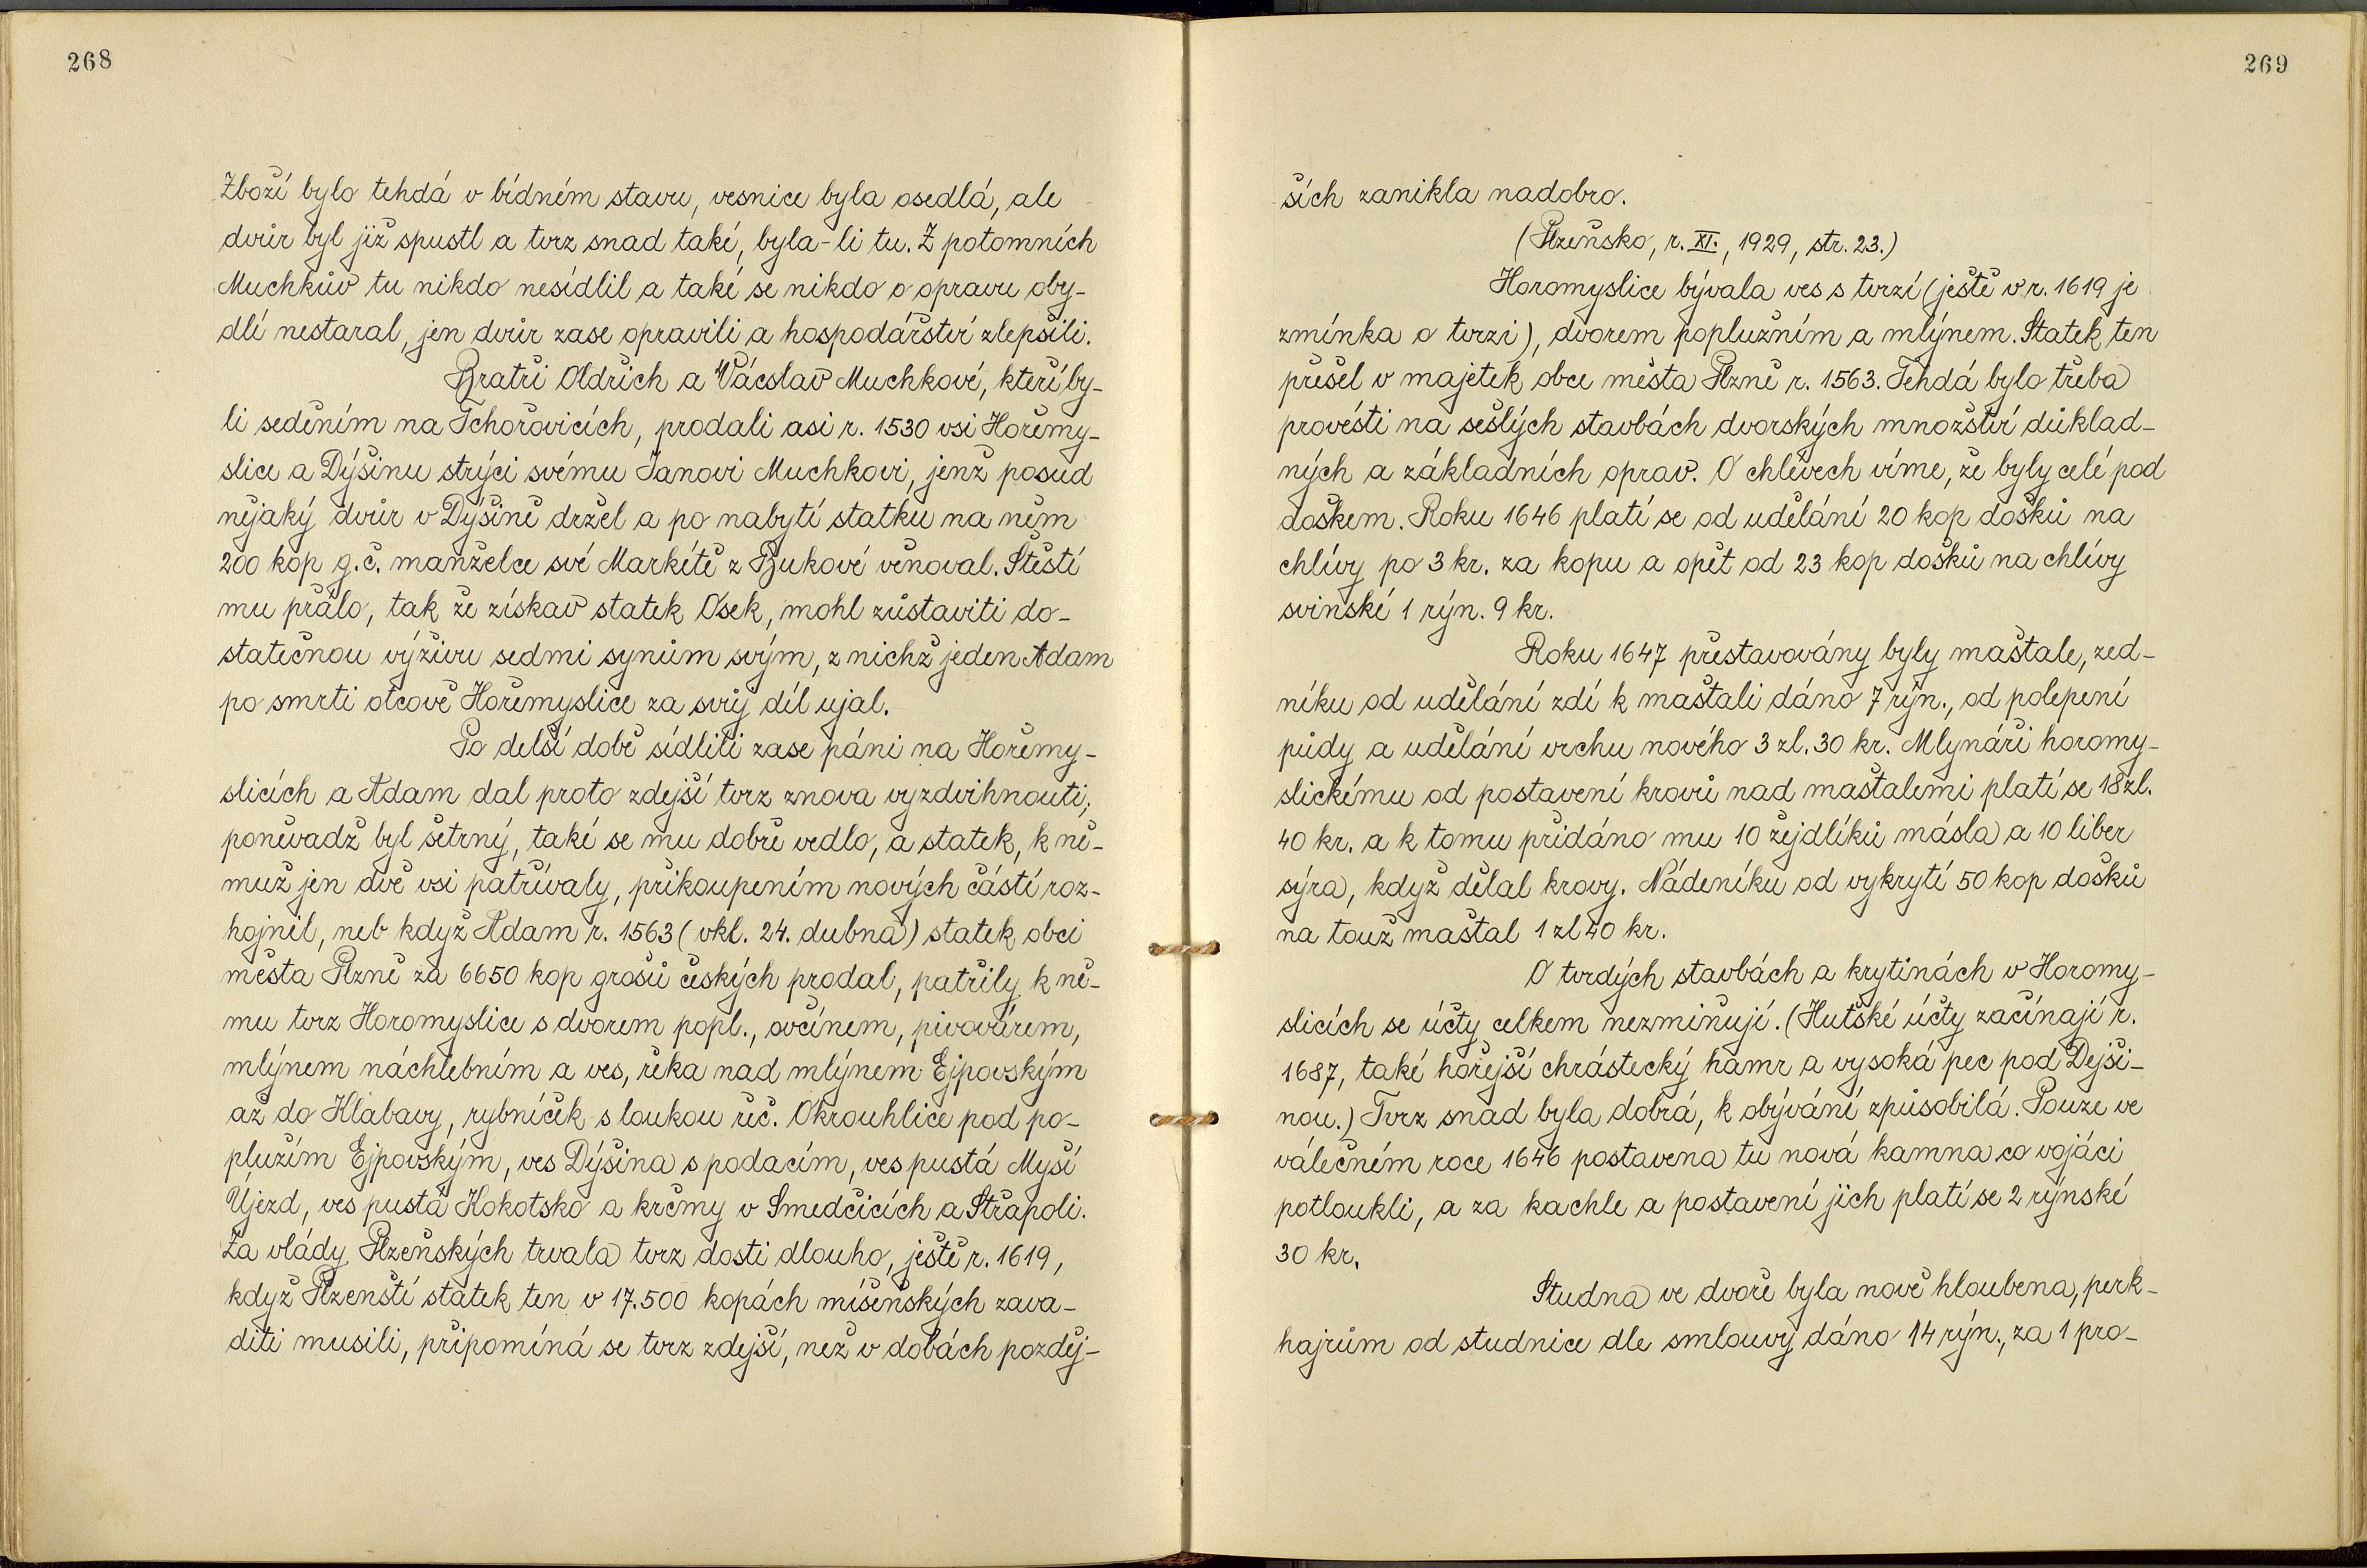 268
Zboží bylo tehdá v bídném stavu, vesnice byla osedlá, ale
dvůr byl již spustl a tvrz snad také, byla-li tu. Z potomních
Muchkův tu nikdo nesídlil a také se nikdo o opravu oby-
dlí nestaral, jen dvůr zase opravili a hospodářství zlepšili.
Bratři Oldřich a Václav Muchkové, kteří by-
li seděním na Tchořovicích, prodali asi r. 1530 vsi Hořemy-
slice a Dýšinu strýci svému Janovi Muchkovi, jenž posud
nějaký dvůr v Dýšině držel a po nabytí statku na něm
200 kop g.č. manželce své Markétě z Bukové věnoval. Štěstí
mu přálo, tak že získav statek Osek, mohl zůstaviti do-
statečnou výživu sedmi synům svým, z nichž jeden Adam
po smrti otcově Hořemyslice za svůj díl ujal.
Po delší době sídlili zase páni na Hořemy-
slicích a Adam dal proto zdejší tvrz znova vyzdvihnouti;
poněvadž byl šetrný, také se mu dobře vedlo, a statek, k ně-
muž jen dvě vsi patřívaly, přikoupením nových částí roz-
hojnil, neb když Adam r. 1563 (vkl. 24. dubna) statek obci
města Plzně za 6650 kop grošů českých prodal, patřily k ně-
mu tvrz Horomyslice s dvorem popl., ovčínem, pivovárem,
mlýnem náchlebním a ves, řeka nad mlýnem Ejpovským
až do Klabavy, rybníček s loukou řeč. Okrouhlice pod po-
plužím Ejpovským, ves Dýšina s podacím, ves pustá Myší
Újezd, ves pustá Kokotsko a krčmy v Smedčicích a Střapoli.
Za vlády Plzeňských trvala tvrz dosti dlouho, ještě r. 1619,
když Plzenští statek ten v 17.500 kopách míšeňských zava-
diti musili, připomíná se tvrz zdejší, než v dobách pozděj-
269
ších zanikla nadobro.
(Plzeňsko, r. XI., 1929, str. 23.)
Horomyslice bývala ves s tvrzí (ještě v r. 1619 je
zmínka o tvrzi), dvorem poplužním a mlýnem. Statek ten
přešel v majetek obce města Plzně r. 1563. Tehdá bylo třeba
provésti na sešlých stavbách dvorských množství důklad-
ných a základních oprav. O chlévech víme, že byly celé pod
doškem. Roku 1646 platí se od udělání 20 kop došků na
chlívy po 3 kr. za kopu a opět od 23 kop došků na chlívy
svinské 1 rýn. 9 kr.
Roku 1647 přestavovány byly maštale, zed-
níku od udělání zdí k maštali dáno 7 rýn., od polepení
půdy a udělání vrchu nového 3 zl. 30 kr. Mlynáři horomy-
slickému od postavení krovů nad maštalemi platí se 18 zl.
40 kr. a k tomu přidáno mu 10 žejdlíků másla a 10 liber
sýra, když dělal krovy. Nádeníku od vykrytí 50 kop došků
na touž maštal 1 zl 40 kr.
O tvrdých stavbách a krytinách v Horomy-
slicích se účty celkem nezmiňují. (Huťské účty začínají r.
1687, také hořejší chrástecký hamr a vysoká pec pod Dejši-
nou.) Tvrz snad byla dobrá, k obývání způsobilá. Pouze ve
válečném roce 1646 postavena tu nová kamna co vojáci
potloukli, a za kachle a postavení jich platí se 2 rýnské
30 kr.
Studna ve dvoře byla nově hloubena, perk-
hajrům od studnice dle smlouvy dáno 14 rýn., za 1 pro-